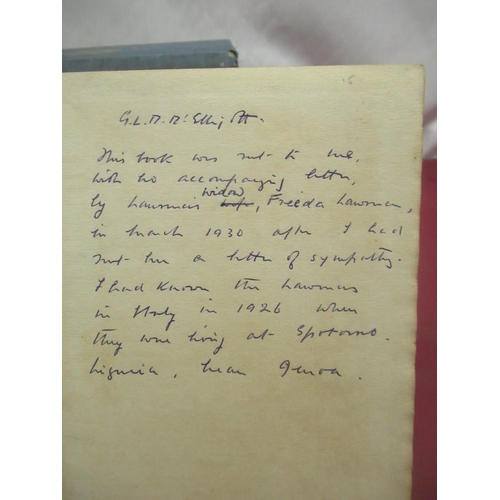 G.L.M. McElligott.
This book was sent to me,
with no accompanying letter,
by Lawrence's widow wife, Frieda Lawrence,
in March 1930 after I had
sent her a letter of sympathy.
I had known the Lawrences
in Italy in 1926 when
they were living at Spotorno.
Liguria, near Genoa.